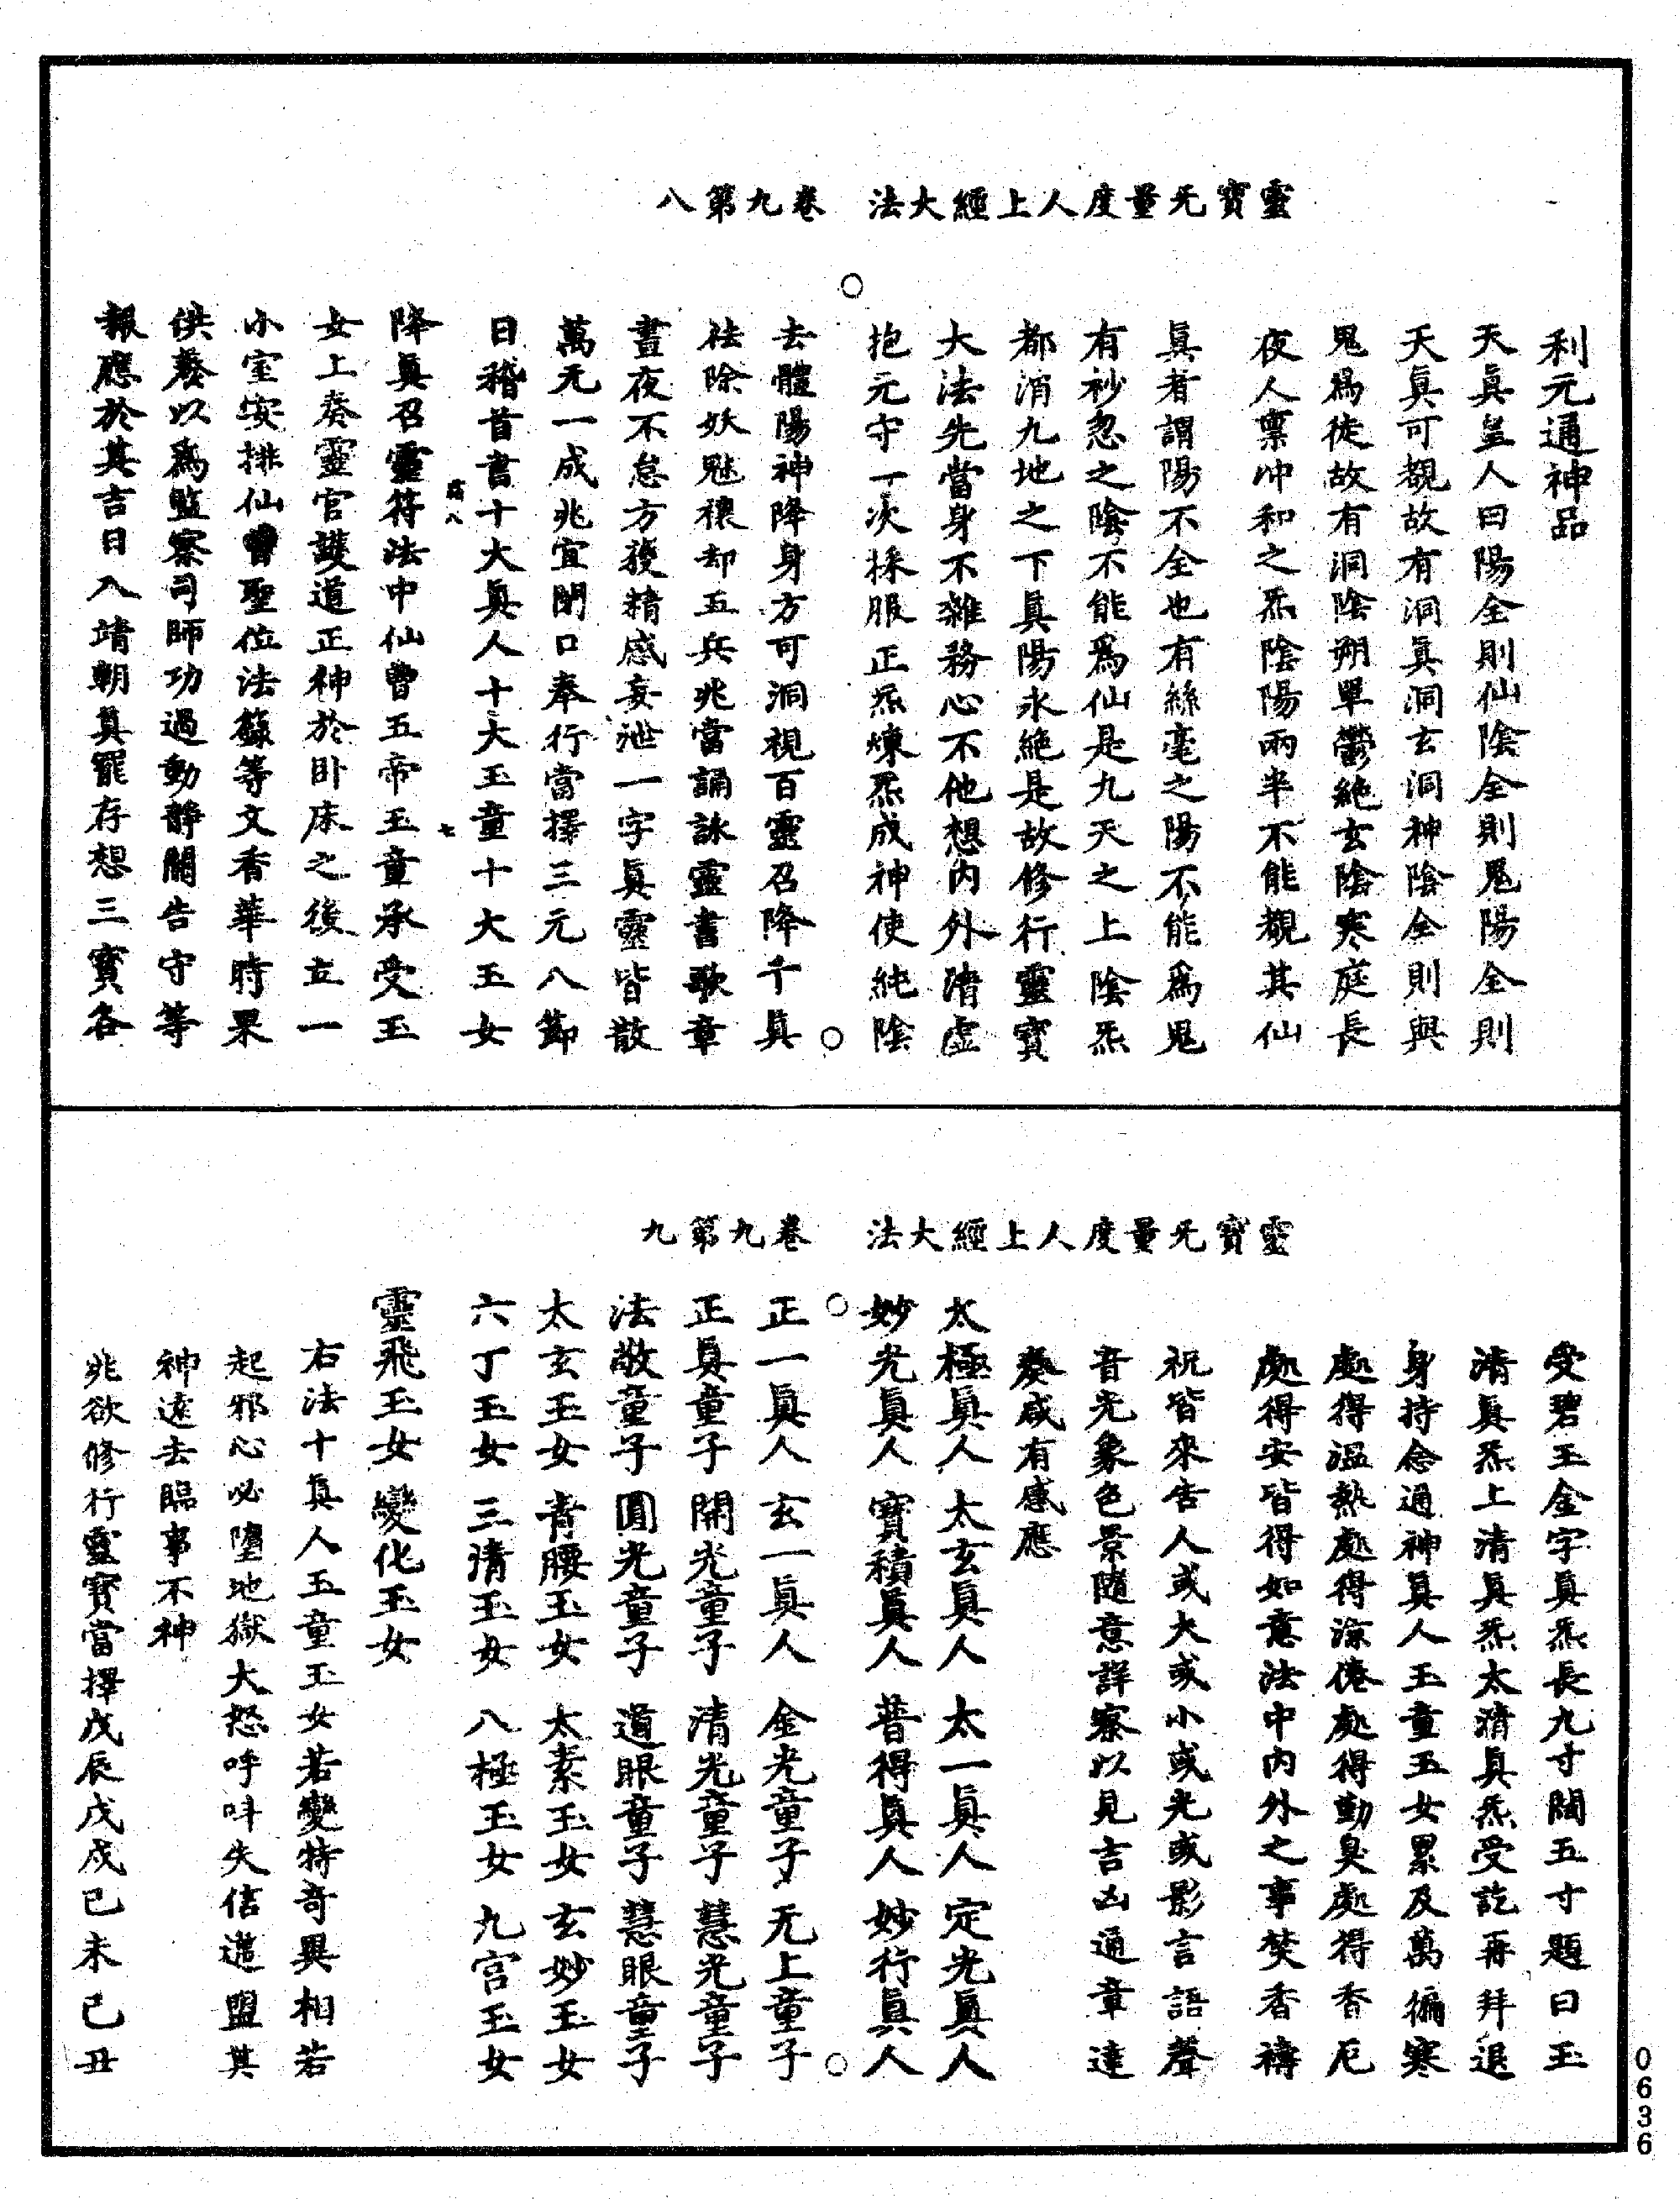 靈寶无量度人上經大法　卷九第八
利元通神品
天眞皇人曰陽全則仙陰全則鬼陽全則
天眞可覩故有洞眞洞玄洞神陰全則與
鬼爲徒故有洞陰朔單鬱絶玄陰寒庭長
夜人禀冲和之炁陰陽兩半不能覩其仙
眞者謂陽不全也有絲毫之陽不能爲鬼
有秒忽之陰不能爲仙是九天之上陰炁
都消九地之下眞陽永絶是故修行靈寶
大法先當身不雜務心不他想内外清虛
抱元守一次採服正炁煉炁成神使純陰
去體陽神降身方可洞視百靈召降千眞
祛除妖魅禳却五兵兆當誦詠靈書歌章
晝夜不怠方獲精感妄泄一字眞靈皆散
萬无一成兆宜閉口奉行當擇三元八節
日稽首書十大眞人十大玉童十大玉女
霜八　七
降眞召靈符法中仙曹五帝玉童承受玉
女上奏靈官護道正神於卧床之後立一
小室安排仙曹聖位法籙等文香華時果
供養以爲監察司師功過動静關告守等
報應於其吉日入靖朝眞罷存想三寶各
靈寶无量度人上經大法　卷九第九
受碧玉金字眞炁長九寸闊五寸題曰玉
清眞炁上清眞炁太清眞炁受訖再拜退
身持念通神眞人玉童玉女累及萬徧寒
處得溫熱處得涼倦處得勤臭處得香厄
處得安皆得如意法中内外之事焚香禱
祝皆來告人或大或小或光或影言語聲
音光象色景隨意詳察以見吉凶通章達
奏咸有感應
太極眞人　太玄眞人　太一眞人　定光眞人
妙光眞人　寶積眞人　普得眞人　妙行眞人
正一眞人　玄一眞人　金光童子　无上童子
正眞童子　開光童子　清光童子　慧光童子
法敬童子　圓光童子　道眼童子　慧眼童子
太玄玉女　青腰玉女　太素玉女　玄妙玉女
六丁玉女　三清玉女　八極玉女　九宫玉女
靈飛玉女　變化玉女
右法十眞人玉童玉女若變特奇異相若
起邪心必墮地獄大怒呼呌失信違盟其
神遠去臨事不神
兆欲修行靈寶當擇戊辰戊戌己未己丑
0636